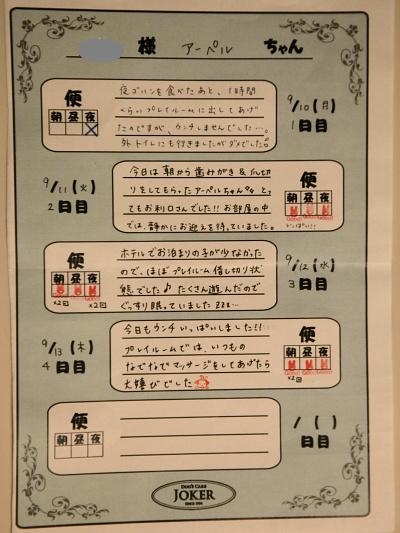 様 アーペル ちゃん
便
朝 昼 夜
夜ゴハンを食べたあと、1時間
くらいプレイルームに出してあげ
たのですが、ウンチしませんでした…。
外トイレにも行きましたがダメでした。
9/10 (月)
1日目
9/11 (火)
2日目
今日は朝から歯みがき&爪切
りをしてもらったアーペルちゃん と
てもお利口さんでした!!お部屋の中
では、静かにお迎えを待っていました。
便
朝 昼 夜
Good! Good! Good!
いっぱい!!
便
朝 昼 夜
Good!
×2回 ×2回
ホテルでお泊まりの子が少なかった
ので、ほぼプレイルーム借し切り状
態でした♪ たくさん遊んだので
ぐっすり眠っていました zzz…
9/12 (水)
3日目
9/13 (木)
4日目
今日もウンチいっぱいしました!!
プレイルームでは、いつもの
なでなでマッサージをしてあげたら
大喜びでした
便
朝 昼 夜
Good! Good! Good!
×2回
便
朝 昼 夜
/ ( )
日目
DOG'S CARE
JOKER
SINCE 1984